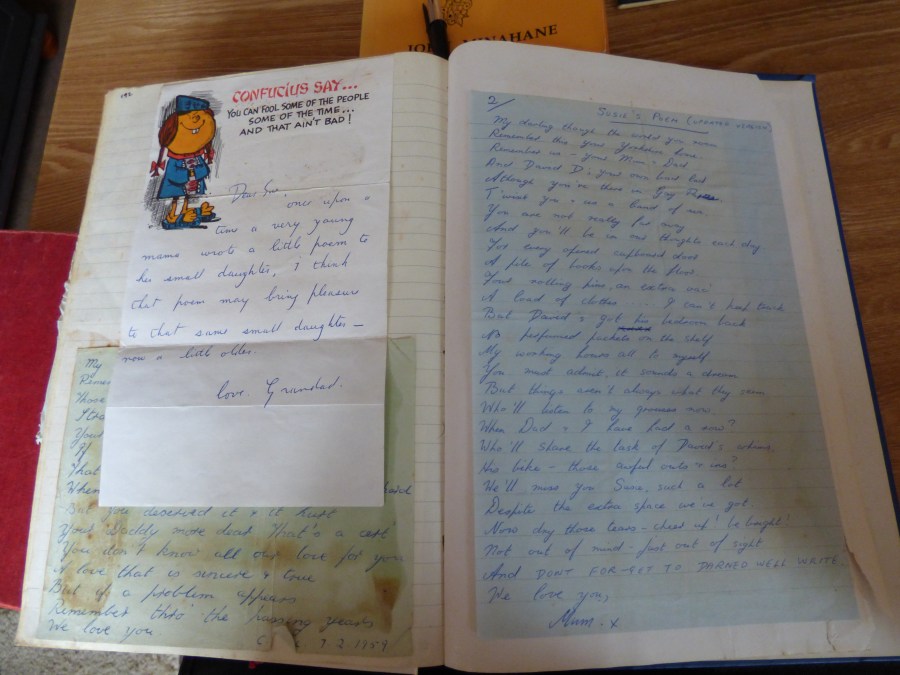 192
CONFUCIUS SAY...
YOU CAN FOOL SOME OF THE PEOPLE
SOME OF THE TIME...
AND THAT AIN'T BAD!
Dear Sue,
once upon a
time a very young
mama wrote a little poem to
her small daughter, I think
that poem may bring pleasure
to that same small daughter -
now a little older.
love. Grandad.
My
Remem
Those
Your
If
That
When
But you deserved it & it hurt
Your Daddy more dear That's a cert
You don't know all our love for you
A love that is sincere & true
But if a problem appears
Remember thro' the passing years
We love you
7.2.1959
2/
SUSIE'S POEM (UPDATED VERSION)
My darling, though the world you roam
Remember this your Yorkshire home.
Remember us - your Mum & Dad
And David D; your own dear lad
Although you're there in Gay
T'want you
You are not really far away
And you'll be in our thoughts each day.
For every opened cupboard door
A pile of books upon the floor
Your rolling pins, an extra
A load of clothes ... I can't
But David's got his bedroom back
No perfumed packets on the shelf
My working hours all to myself
You must admit, it sounds a dream
But things aren't always what they seem
Who'll listen to my grouses now.
When Dad & I have had a row?
Who'll share the task of David's whims,
His bike - those awful outs & ins?
We'll miss you Susie, such a lot
Despite the extra space we've got.
Now dry those tears - cheer up! be bright!
Not out of mind - just out of sight
And DON'T FOR-GET TO DARNED WELL WRITE.
We love you,
Mum. x